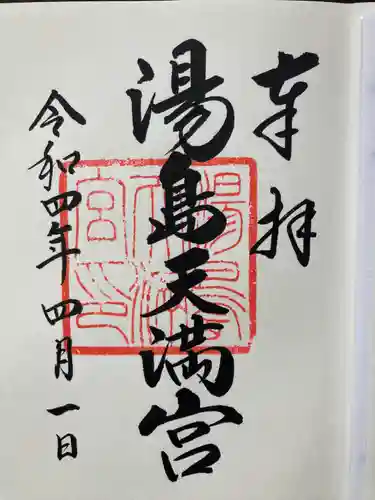 奉拝
湯島天満宮
令和四年四月一日